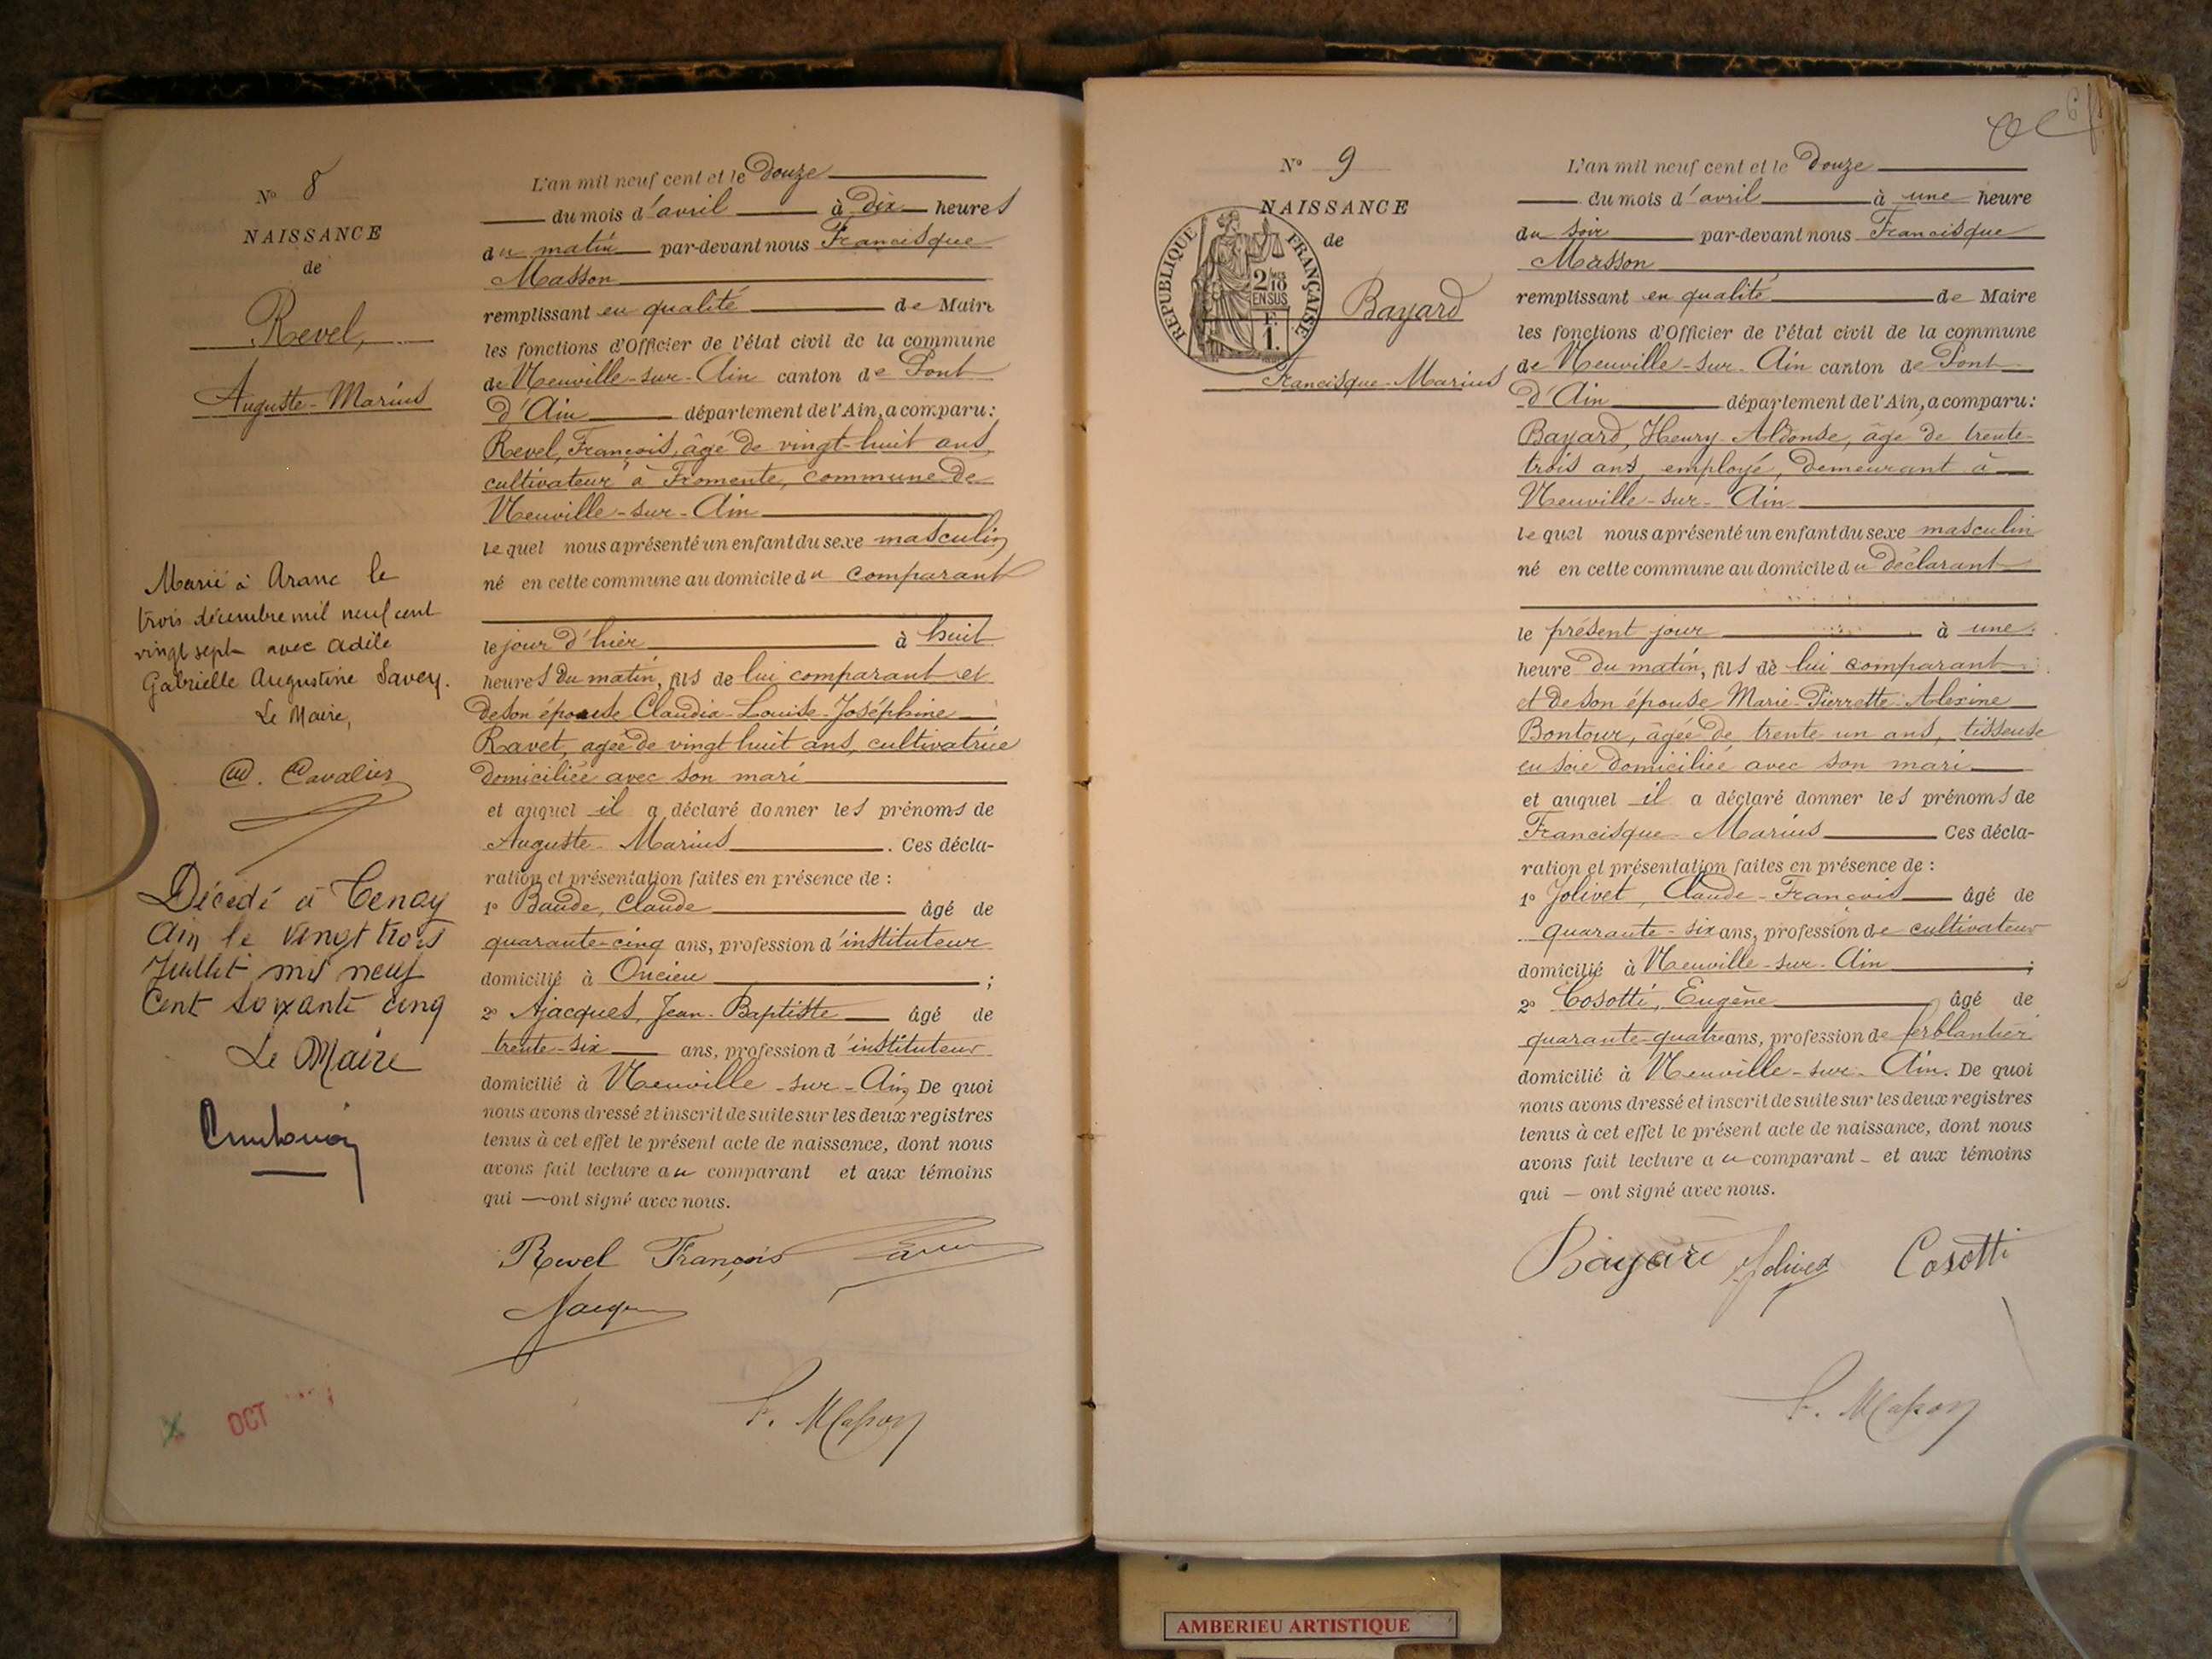 N° 8
NAISSANCE
de
Revel,
Auguste-Marius
Marié à Aranc le
trois décembre mil neuf cent
vingt sept avec Adèle
Gabrielle Augustine Savey.
Le Maire,
Cavalier
Décédé à Tenay
Ain le vingt trois
Juillet mil neuf
Cent soixante cinq
Le Maire
OCT
L'an mil neuf cent et le Douze
du mois d'avril à Dix heures
du matin par-devant nous Francisque
Masson
remplissant en qualité de Maire
les fonctions d'Officier de l'état civil de la commune
de Neuville-sur-Ain canton de Pont
d'Ain département de l'Ain, a comparu :
Revel, François, âgé de vingt-huit ans,
cultivateur à Fromente, commune de
Neuville-sur-Ain
lequel nous a présenté un enfant du sexe masculin
né en cette commune au domicile du comparant
le jour d'hier à huit
heures du matin, fils de lui comparant et
de son épouse Claudia-Louise-Joséphine
Ravet, agée de vingt huit ans, cultivatrice
domiciliée avec son mari
et auquel il a déclaré donner les prénoms de
Auguste-Marius. Ces décla-
ration et présentation faites en présence de :
1° Baude, Claude âgé de
quarante-cinq ans, profession d'instituteur
domicilié à Oncieu ;
2° Ajacques, Jean-Baptiste âgé de
trente-six ans, profession d'instituteur
domicilié à Neuville-sur-Ain, De quoi
nous avons dressé et inscrit de suite sur les deux registres
tenus à cet effet le présent acte de naissance, dont nous
avons fait lecture au comparant et aux témoins
qui — ont signé avec nous.
Revel François
F. Masson
N° 9
NAISSANCE
de
REPUBLIQUE FRANÇAISE
2/10 EN SUS
F.
1.
Bayard
Francisque-Marius
L'an mil neuf cent et le Douze
du mois d'avril à une heure
du soir par-devant nous Francisque
Masson
remplissant en qualité de Maire
les fonctions d'Officier de l'état civil de la commune
de Neuville-sur-Ain canton de Pont
d'Ain département de l'Ain, a comparu :
Bayard, Henry-Aldonse, âgé de trente-
trois ans, employé, demeurant à
Neuville-sur-Ain
lequel nous a présenté un enfant du sexe masculin
né en cette commune au domicile du déclarant
le présent jour à une
heure du matin, fils de lui comparant
et de son épouse Marie-Pierrette-Alexine
Bontour, âgée de trente-un ans, tisseuse
en soie domiciliée avec son mari
et auquel il a déclaré donner les prénoms de
Francisque-Marius Ces décla-
ration et présentation faites en présence de :
1° Jolivet, Claude-François âgé de
quarante-six ans, profession de cultivateur
domicilié à Neuville-sur-Ain ;
2° Cosotti, Eugène âgé de
quarante-quatre ans, profession de ferblantier
domicilié à Neuville-sur-Ain. De quoi
nous avons dressé et inscrit de suite sur les deux registres
tenus à cet effet le présent acte de naissance, dont nous
avons fait lecture au comparant - et aux témoins
qui — ont signé avec nous.
Bayard Jolivet Cosotti
F. Masson
AMBERIEU ARTISTIQUE